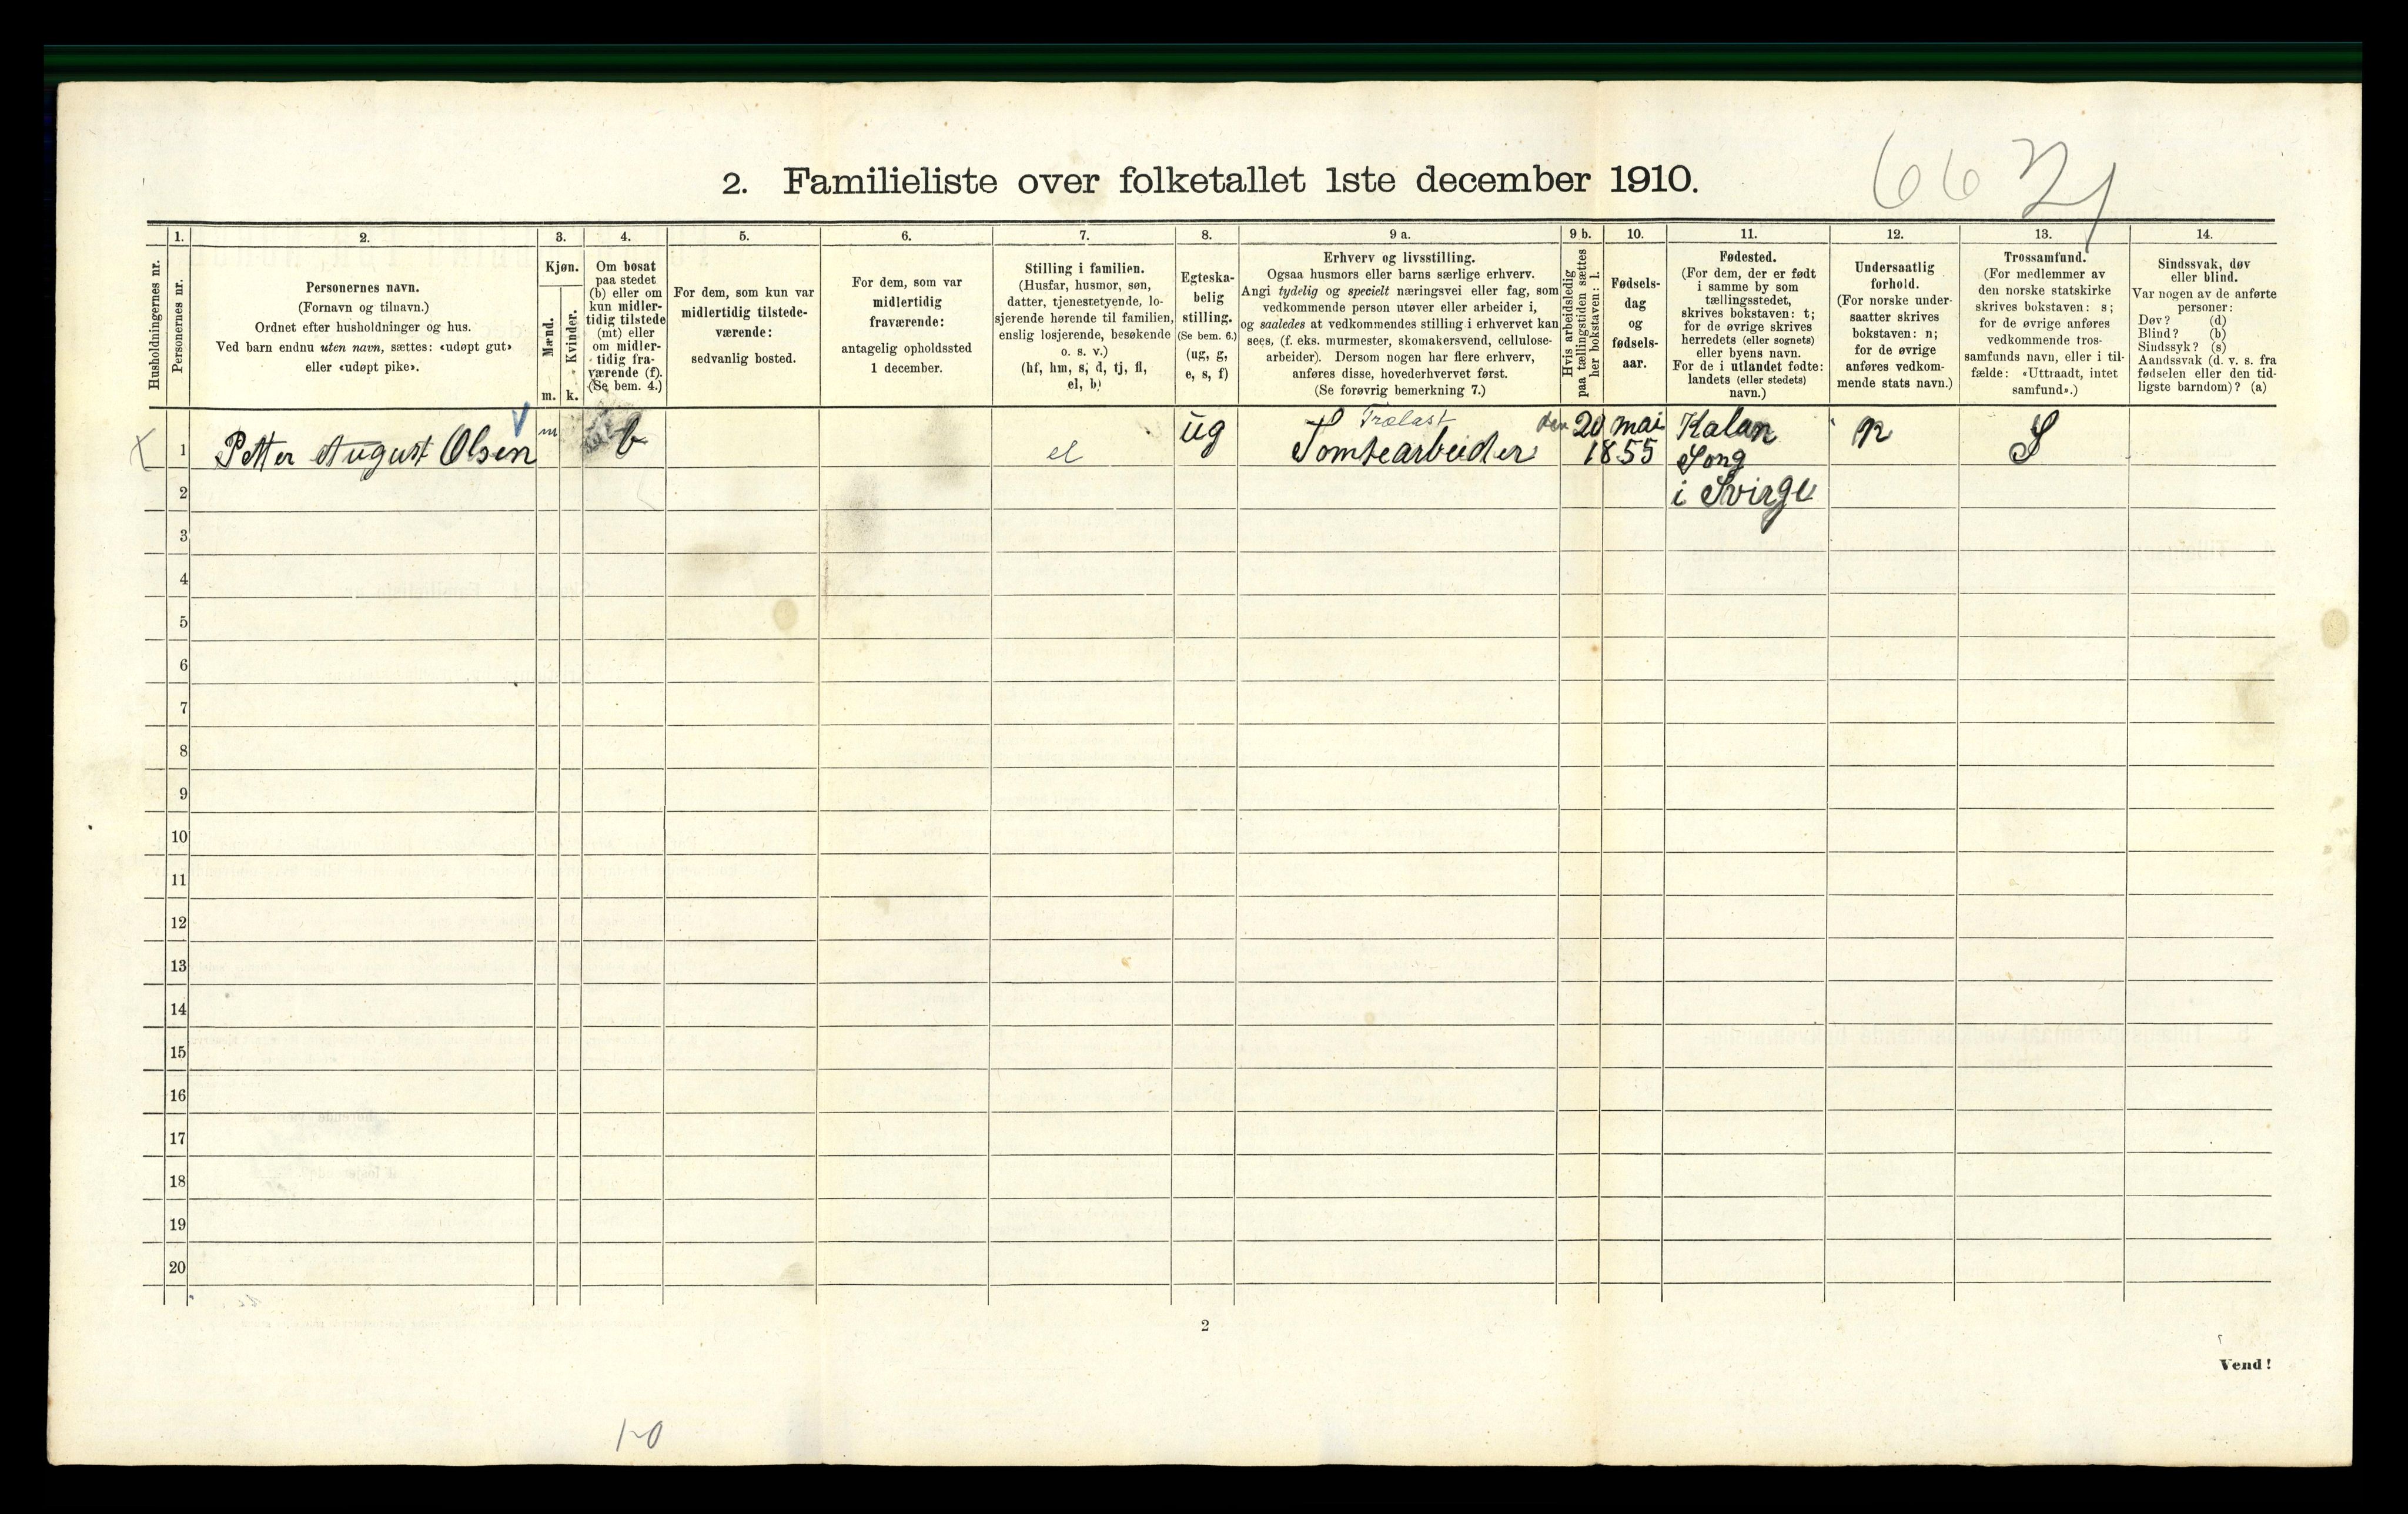 2. Familieliste over folketallet 1ste december 1910.
6621
1.
2.
3.
4.
5.
6.
7.
8.
9 a.
9 b.
10.
11.
12.
13.
14.
Husholdningernes nr.
Personernes nr.
Personernes navn.
(Fornavn og tilnavn.)
Ordnet efter husholdninger og hus.
Ved barn endnu uten navn, sættes: «udøpt gut»
eller «udøpt pike».
Kjøn.
Mænd.
Kvinder.
m.
k.
Om bosat
paa stedet
(b) eller om
kun midler-
tidig tilstede
(mt) eller
om midler-
tidig fra-
værende (f).
(Se bem. 4.)
For dem, som kun var
midlertidig tilstede-
værende:
sedvanlig bosted.
For dem, som var
midlertidig
fraværende:
antagelig opholdssted
1 december.
Stilling i familien.
(Husfar, husmor, søn,
datter, tjenestetyende, lo-
sjerende hørende til familien,
enslig losjerende, besøkende
o. s. v.)
(hf, hm, s, d, tj, fl,
el, b)
Egteska-
belig
stilling.
(Se bem. 6.)
(ug, g,
e, s, f)
Erhverv og livsstilling.
Ogsaa husmors eller barns særlige erhverv.
Angi tydelig og specielt næringsvei eller fag, som
vedkommende person utøver eller arbeider i,
og saaledes at vedkommendes stilling i erhvervet kan
sees, (f. eks. murmester, skomakersvend, cellulose-
arbeider). Dersom nogen har flere erhverv,
anføres disse, hovederhvervet først.
(Se forøvrig bemerkning 7.)
Hvis arbeidsledig
paa tællingstiden sættes
her bokstaven: l.
Fødsels-
dag
og
fødsels-
aar.
Fødested.
(For dem, der er født
i samme by som
tællingsstedet,
skrives bokstaven: t;
for de øvrige skrives
herredets (eller sognets)
eller byens navn.
For de i utlandet fødte:
landets (eller stedets)
navn.)
Undersaatlig
forhold.
(For norske under-
saatter skrives
bokstaven: n;
for de øvrige
anføres vedkom-
mende stats navn.)
Trossamfund.
(For medlemmer av
den norske statskirke
skrives bokstaven: s;
for de øvrige anføres
vedkommende tros-
samfunds navn, eller i til-
fælde: «Uttraadt, intet
samfund».)
Sindssvak, døv
eller blind.
Var nogen av de anførte
personer:
Døv? (d)
Blind? (b)
Sindssyk? (s)
Aandssvak (d. v. s. fra
fødselen eller den tid-
ligste barndom)? (a)
1
Petter August Olsen
m
b
el
ug
Trælast
Tomtearbeider
den 20 mai
1855
Kalan
Song
i Svirge
n
S
2
3
4
5
6
7
8
9
10
11
12
13
14
15
16
17
18
19
20
2
Vend!
1-0